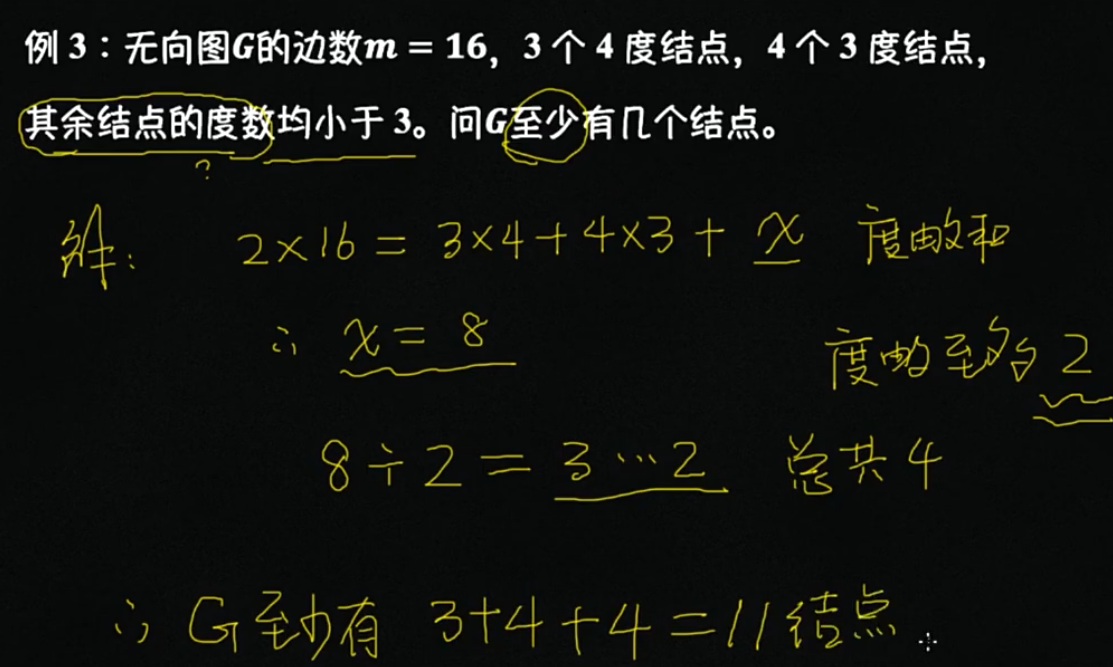 例 3：无向图G的边数m = 16，3 个 4 度结点，4 个 3 度结点，
其余结点的度数均小于 3。问G至少有几个结点。
?
解: 2×16 = 3×4+4×3+ x 度数和
∴ x = 8
度数至多 2
8÷2 = 3…2 总共4
∴ G至少有 3+4+4=11结点